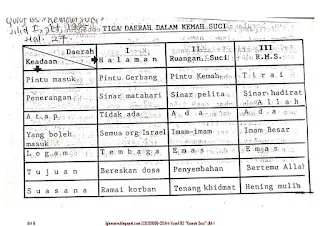 TIGA DAERAH DALAM KEMAH SUCI
Hal. 27.
Daerah I II III
Keadaan Halaman Ruangan Suci R.M.S.
Pintu masuk Pintu Gerbang Pintu Kemah Tirai
Penerangan Sinar matahari Sinar pelita Sinar hadirat Allah
Atap Tidak ada Ada Ada
Yang boleh masuk Semua org Israel Imam-imam Imam Besar
Logam Tembaga Emas Emas
Tujuan Bereskan dosa Penyembahan Bertemu Allah
Suasana Ramai korban Tenang khidmat Hening mulia